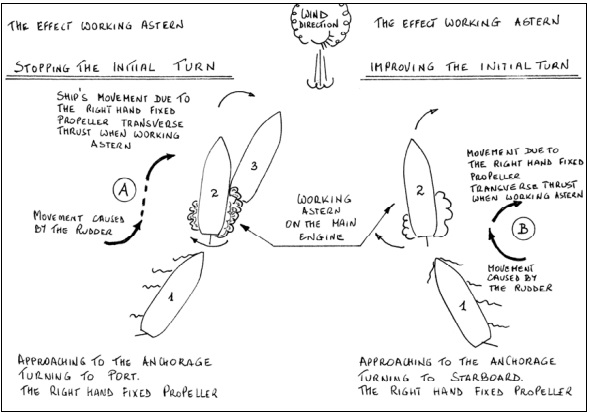 THE EFFECT WORKING ASTERN
STOPPING THE INITIAL TURN
SHIP'S MOVEMENT DUE TO
THE RIGHT HAND FIXED
PROPELLER TRANSVERSE
THRUST WHEN WORKING
ASTERN
A
MOVEMENT CAUSED
BY THE RUDDER
3
2
1
APPROACHING TO THE ANCHORAGE
TURNING TO PORT.
THE RIGHT HAND FIXED PROPELLER
WIND
DIRECTION
WORKING
ASTERN
ON THE MAIN
ENGINE
THE EFFECT WORKING ASTERN
IMPROVING THE INITIAL TURN
2
MOVEMENT DUE TO
THE RIGHT HAND FIXED
PROPELLER
TRANSVERSE THRUST
WHEN WORKING ASTERN
B
MOVEMENT
CAUSED BY
THE RUDDER
1
APPROACHING TO THE ANCHORAGE
TURNING TO STARBOARD.
THE RIGHT HAND FIXED PROPELLER